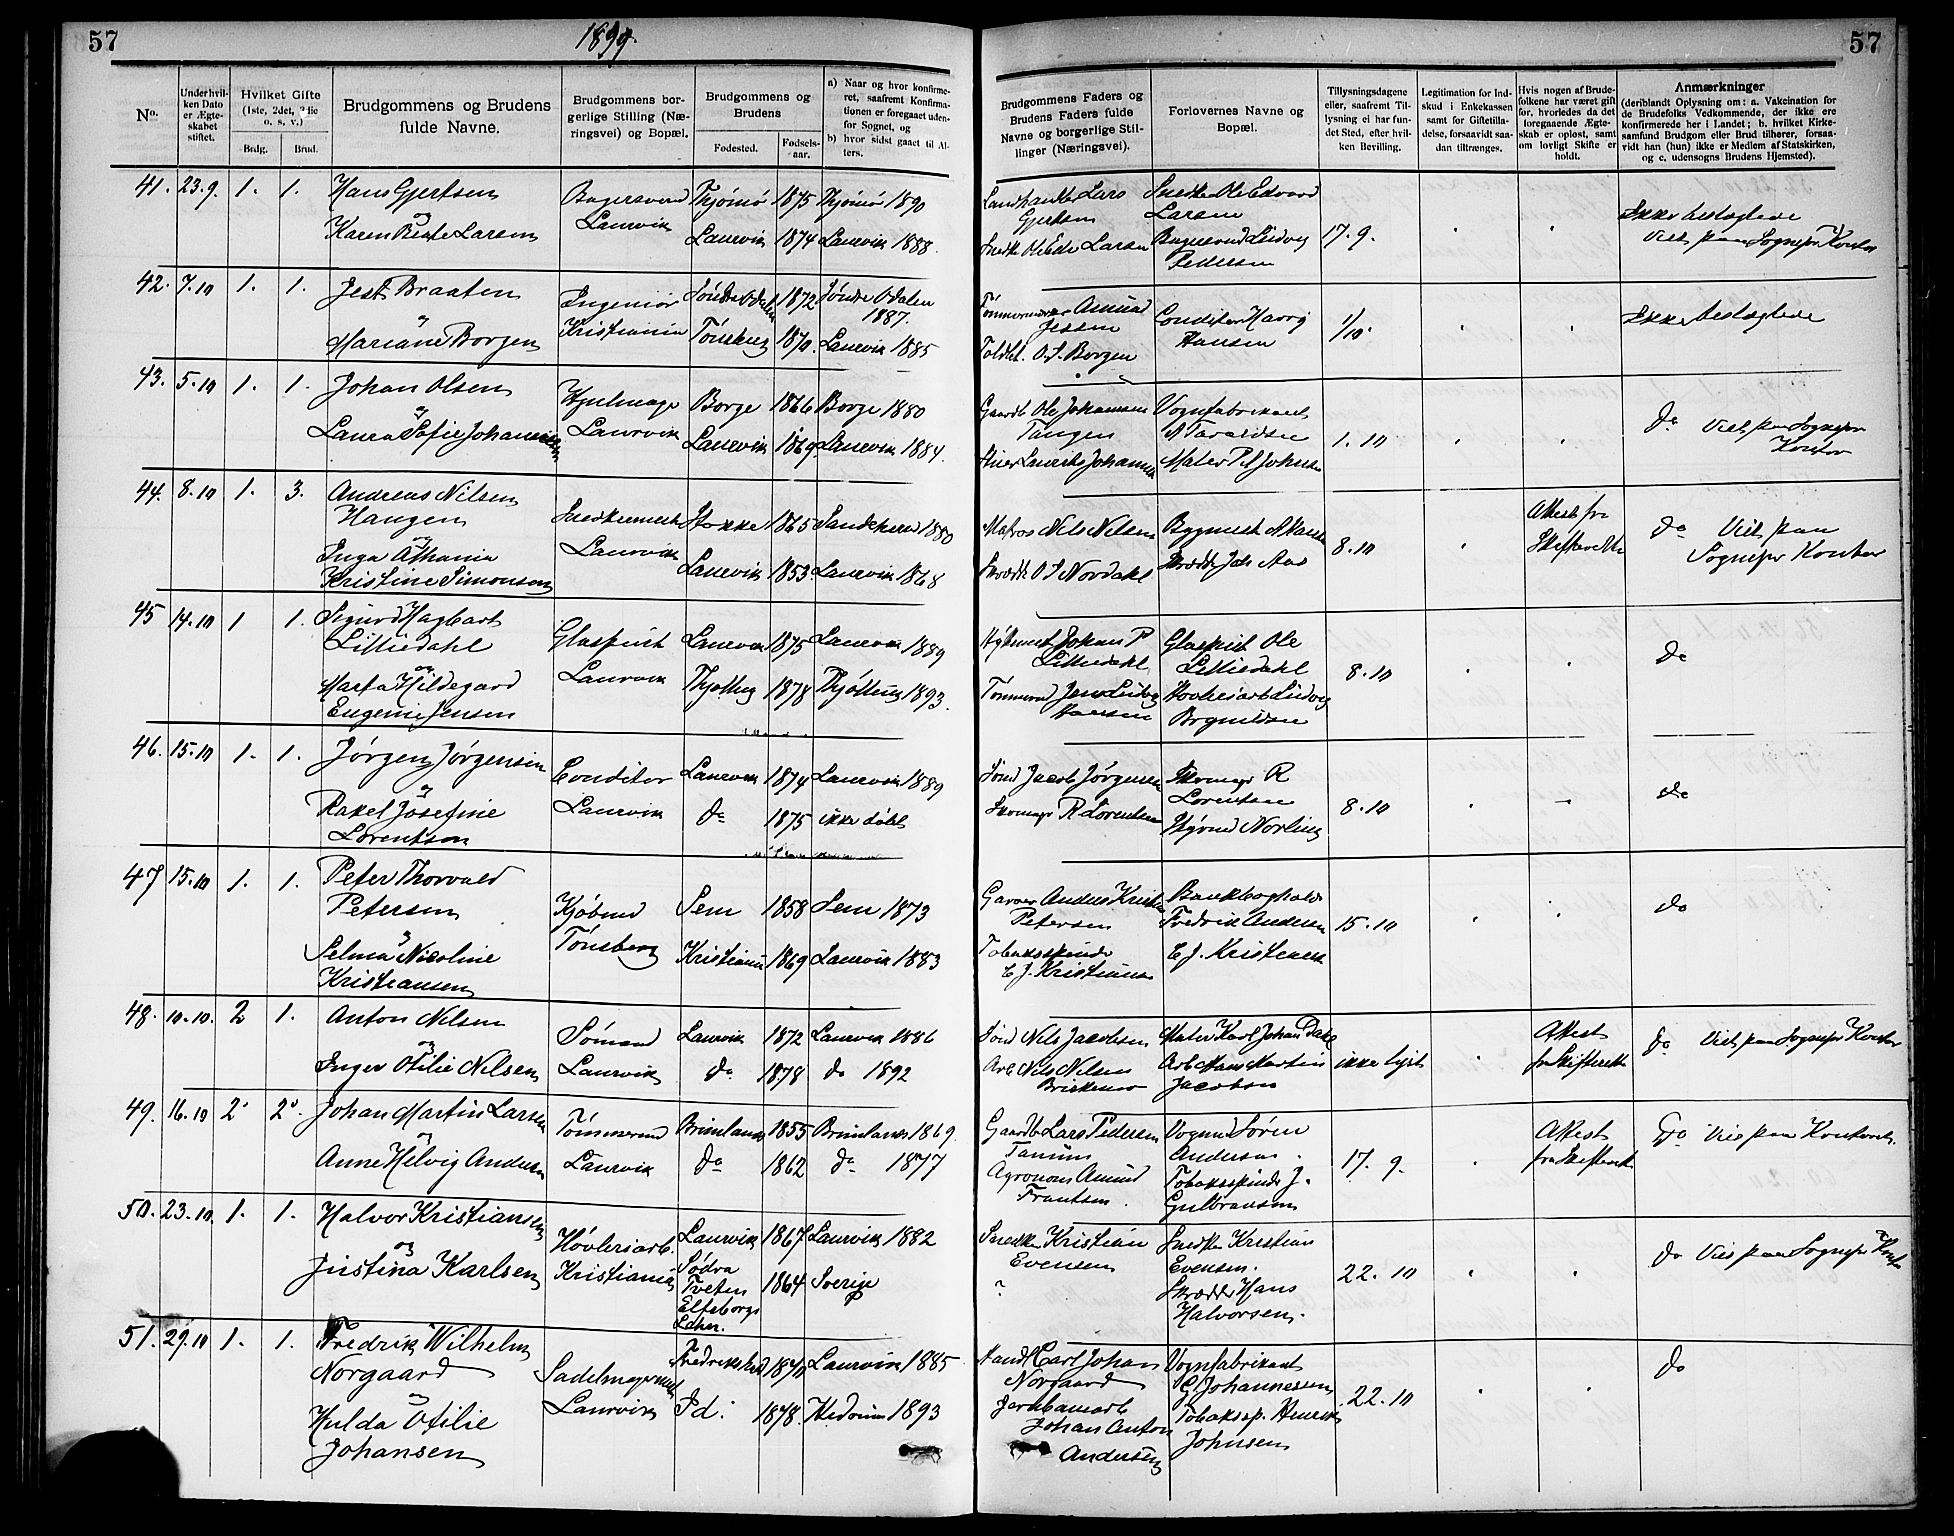 57
1899.
57
No.
Under hvilken Dato er Ægteskabet stiftet.
Hvilket Gifte (1ste, 2det, 3die o. s. v.)
Brdg.
Brud.
Brudgommens og Brudens fulde Navne.
Brudgommens borgerlige Stilling (Næringsvei) og Bopæl.
Brudgommens og Brudens
Fødested.
Fødselsaar.
a) Naar og hvor konfirmeret, saafremt Konfirmationen er foregaaet udenfor Sognet, og
b) hvor sidst gaaet til Alters.
Brudgommens Faders og Brudens Faders fulde Navne og borgerlige Stillinger (Næringsvei).
Forlovernes Navne og Bopæl.
Tillysningsdagene eller, saafremt Tillysning ei har fundet Sted, efter hvilken Bevilling.
Legitimation for Indskud i Enkekassen samt for Giftetilladelse, forsaavidt saadan tiltrænges.
Hvis nogen af Brudefolkene har været gift før, hvorledes da det foregaaende Ægteskab er opløst, samt om lovligt Skifte er holdt.
Anmærkninger
(deriblandt Oplysning om: a. Vakcination for de Brudefolks Vedkommende, der ikke ere konfirmerede her i Landet; b. hvilket Kirkesamfund Brudgom eller Brud tilhører, forsaavidt han (hun) ikke er Medlem af Statskirken, og c. udensogns Brudens Hjemsted).
41. 23.9. 1. 1. Hans Gjertsen
og
Karen Beate Larsen
Bagersvend
Laurvik
Thjømø 1875 Thjømø 1890
Laurvik 1874 Laurvik 1888.
Landhandler Lars
Gjertsen
Snedk Ole Edv Larsen
Snedker Ole Edvard
Larsen
Bagersvend Ludvig
Pedersen
17.9.
Ikke beslægtede
Viet paa Sognepr Kontor
42. 7.10 1. 1. Jest Braaten
og
Mariane Borgen
Ingeniør
Kristiania
Søndre Odalen 1872 Søndre Odalen
1887.
Tønsberg 1870. Laurvik 1885
Tømmermand Amund
Jessen
Toldbt. O. S. Borgen
Conditor Harry
Hansen
1/10
Ikke beslægtede
43. 5.10 1. 1. Johan Olsen
og
Laura Sofie Johannesen
Hjulmager
Laurvik
Borge 1866 Borge 1880
Laurvik 1869 Laurvik 1884.
Gaardb Ole Johannsen
Tangen
Vognfabrikant
A Taraldsen
Maler P A Johnsen
1.10
do Viet paa Sognepr
Kontor
44. 8.10 1. 3. Andreas Nilsen
Haugen
og
Inga Athania
Kristine Simonsen
Snedkermest
Laurvik
Stokke 1865 Sandeherred 1880
Laurvik 1853 Laurvik 1868
Matros Nils Nilsen
Skrædd O. S Nordahl
Bygmest A Hansen
Skrædd Joh Aas
8.10
Attest fra
Skifteretten
do Viet paa
Sognepr Kontor
45 14.10 1 1. Sigurd Hagbart
Lilliedahl
og
Marta Hildegard
Eugenie Jensen
Glaspust
Laurvik
Laurvik 1875 Laurvik 1889
Thjølling 1878 Thjølling 1893.
Hyttemest Johans P
Lilliedahl
Tømmermd Jens Ludvig
Hansen
Glaspust Ole
Lilliedahl
Høvleriarb Ludvig
8.10
do
46. 15.10 1. 1. Jørgen Jørgensen
og
Rakel Josefine
Lorentson
Conditor
Laurvik
Laurvik 1874 Laurvik 1889
do 1875 ikke døbt
Sømd Jacob Jørgensen
Skomagr R Lorentsen
Skomagr R
Lorentsen
Styrmd Norling
8.10
do
47 15.10 1. 1. Peter Thorvald
Petersen
og
Selma Nicoline
Kristiansen
Kjøbmd
Tønsberg
Sem 1858 Sem 1873
Kristiania 1869 Laurvik 1883
Garver Anders Kristian
Petersen
Tobaksspinder
C J. Kristiansen
Bankbogholder
Fredrik Andersen
C J. Kristensen
15.10
do
48. 10.10. 2 1. Anton Nilsen
og
Inger Otilie Nilsen
Sømand
Laurvik
Laurvik 1872 Laurvik 1886
do 1878 do 1892
Sømd Nils Jacobsen
Arb Nils Nilsen
Maler Karl Johan Dahl
Arb Hans Martin
Jacobsen
ikke lyst
Attest
fra Skifterett
do Viet paa Sognepr Kontor
49. 16.10 2. 2. Johan Martin Larsen
og
Anne Helvig Andersen
Tømmermd
Laurvik
Brunlanes 1855 Brunlanes 1869.
do 1862 do 1877
Gaardb Lars Pedersen
Tanum
Agronom Amund
Frantsen
Vognmd Søren
Andersen
Tobaksspinder J.
Gulbransen
17.9.
Attest
fra Skifterett
do Viet paa Kontoret.
50. 23.10. 1. 1. Halvor Kristiansen
og
Justina Karlsen
Høvleriarb.
Kristiania
Laurvik 1867 Laurvik 1882
Södra
Tveten
Elfsborgs
Lehn.
1864 Sverige
Snedker Kristian
Evensen
?
Snedker Kristian
Evensen.
Skrædder Hans
Halvorsen.
22.10
do Viet paa Sognepr Kontor
51. 29.10 1. 1. Fredrik Wilhelm
Norgaard
og
Hulda Otilie
Johansen
Sadelmagermest
Laurvik
Fredrikshald 1870 Laurvik 1885
Id. 1878. Hedrum 1893
Handl Carl Johan
Norgaard
Jernbanearb
Johan Anton
Andersen
Vognfabrikant
G Johannessen
Tobakssp. Henrik
Johnsen
22.10
do